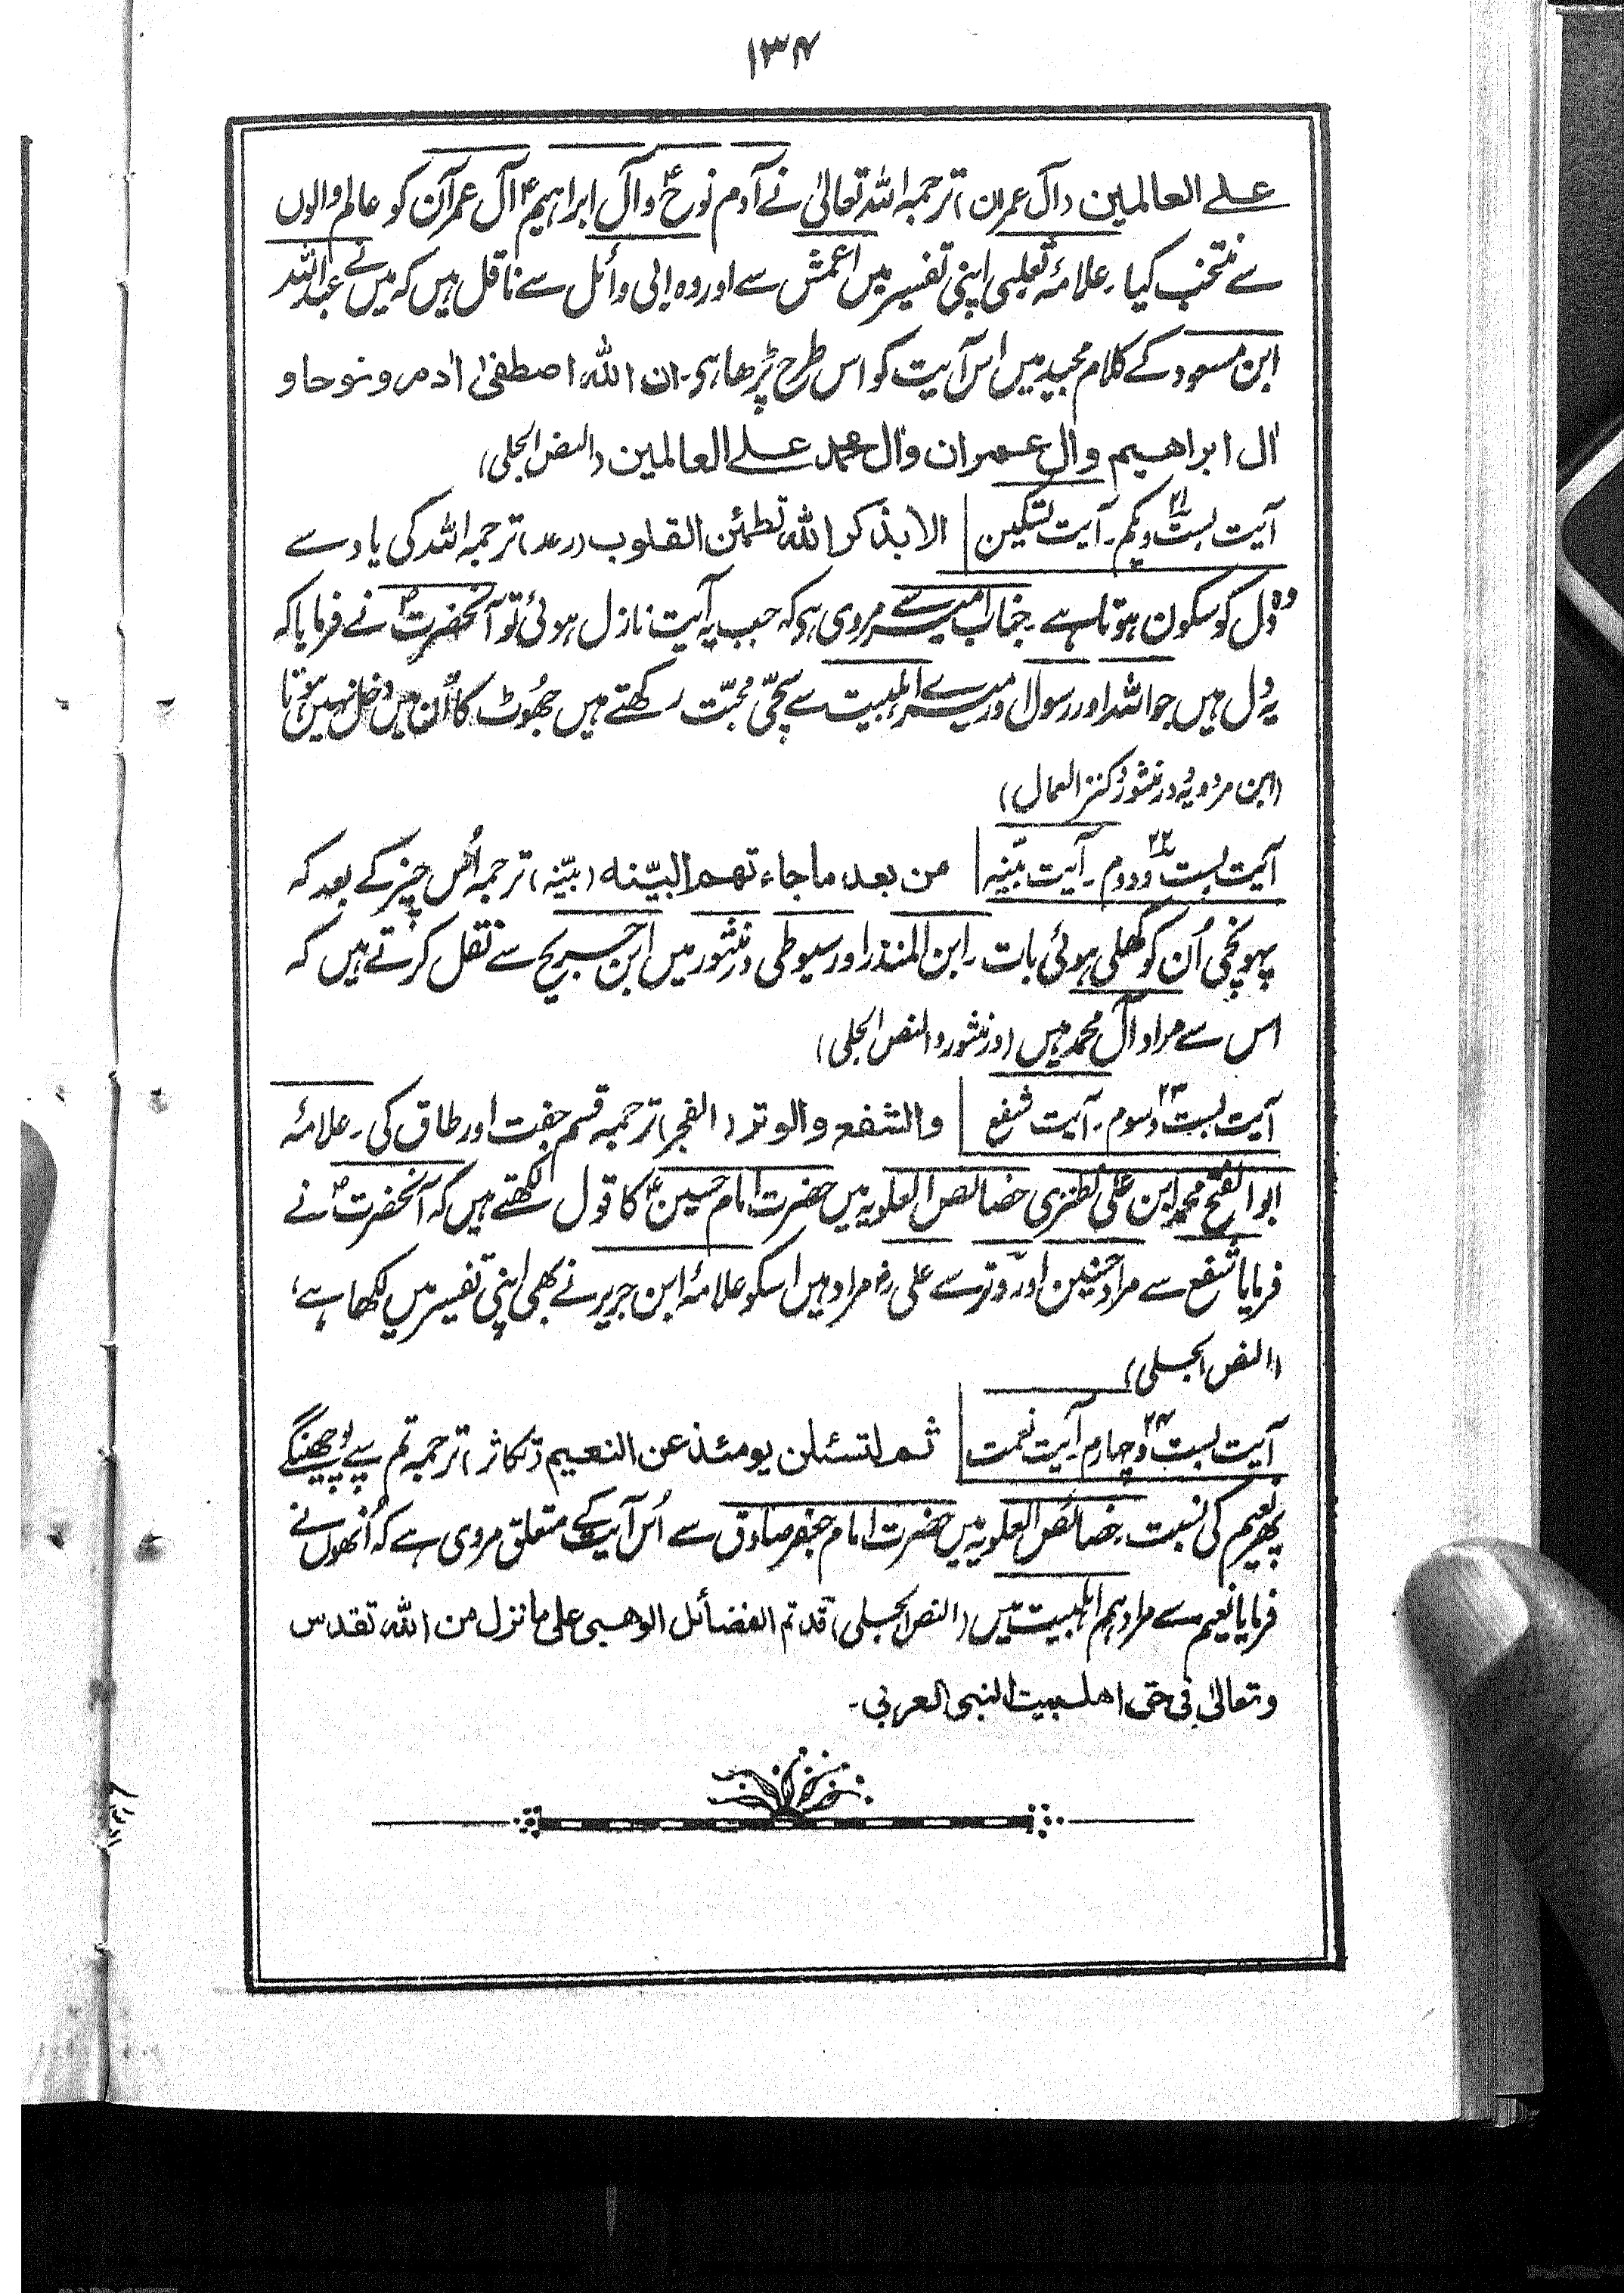 ۱۳۴
علے العالمین (آل عمران) ترجمہ اللہ تعالیٰ نے آدم نوحؑ و آل ابراہیمؑ آل عمرآن کو عالم والوں
سے منتخب کیا۔ علامۂ ثعلبی اپنی تفسیر میں اعمش سے اور وہ ابی وائل سے ناقل ہیں کہ میں نے عبداللہ
ابن مسعود کے کلام مجید میں اس آیت کو اس طرح پڑھا ہی۔ ان اللہ اصطفیٰ اٰدم و نوحا و
اٰل ابراھیم واٰل عمران واٰل محمد علے العالمین (النص الجلی)
آیت بست ویکم۔ آیت تسکین ۲۱ الا بذکر اللہ تطمئن القلوب (رعد) ترجمہ اللہ کی یاد سے
دل کو سکون ہوتا ہے۔ جناب امیر سے مروی ہی کہ جب یہ آیت نازل ہوئی تو آنحضرتؐ نے فرمایا کہ وہ
یہ دل ہیں جو اللہ اور رسول اور میرے اہلبیت سے سچّی محبّت رکھتے ہیں جھُوٹ کا اُن میں دخل نہیں ہوتا
(ابن مردویہ و درمنثور و کنز العمال)
آیت بست ودوم۔ آیت بیّنہ ۲۲ من بعد ما جاءتھم البیّنہ (بیّنہ) ترجمہ اُس چیز کے بعد کہ
پہونچی اُن کو کھلی ہوئی بات۔ ابن المنذر اور سیوطی درمنثور میں ابن جریح سے نقل کرتے ہیں کہ
اس سے مراد آل محمد ہیں (درمنثور و النص الجلی)
آیت بست وسوم۔ آیت شفع ۲۳ والشفع والوتر (الفجر) ترجمہ قسم جفت اور طاق کی۔ علامۂ
ابوالفتح محمد ابن علی نطنزی خصائص العلویہ میں حضرت امام حسینؑ کا قول لکھتے ہیں کہ آنحضرتؐ نے
فرمایا شفع سے مراد حسنین اور وتر سے علی رض مراد ہیں اسکو علامۂ ابن جریر نے بھی اپنی تفسیر میں لکھا ہے،
(النص الجلی)
آیت بست وچہارم۔ آیت نعمت ۲۴ ثم لتسئلن یومئذ عن النعیم (تکاثر) ترجمہ تم سے پُوچھینگے
پھر نعیم کی نسبت۔ خصائص العلویہ میں حضرت امام جعفر صادق سے اُس آیت کے متعلق مروی ہے کہ اُنھوں نے
فرمایا نعیم سے مراد ہم اہلبیت ہیں (النص الجلی) قد تم الفضائل الوھبی علی ما نزل من اللہ تقدس
وتعالیٰ فی حق اھلبیت النبی العربی۔